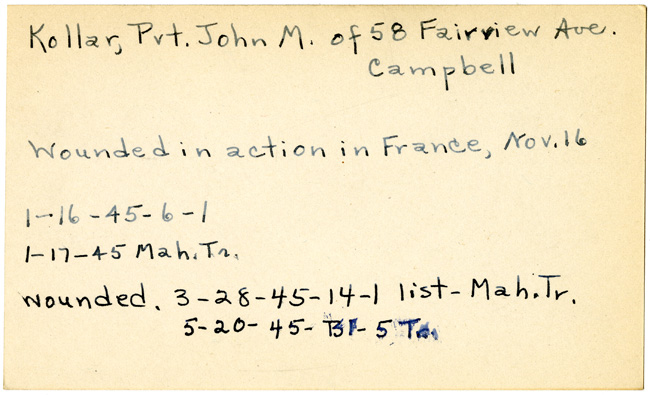 Kollar, Pvt. John M. of 58 Fairview Ave.
Campbell
Wounded in action in France, Nov. 16
1-16-45-6-1
1-17-45 Mah. Tr.
wounded. 3-28-45-14-1 list - Mah. Tr.
5-20-45- B1-5 Tr.